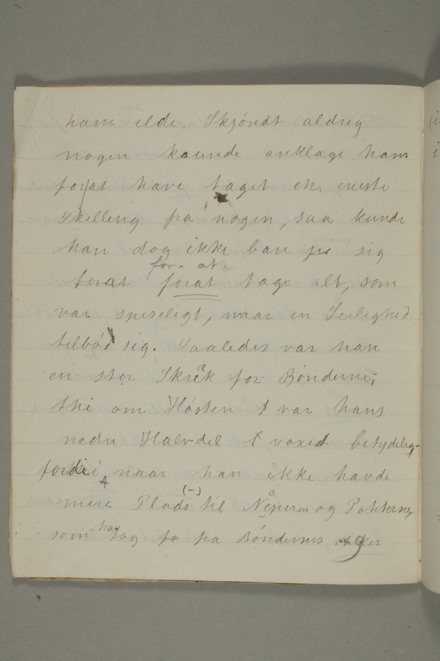 ham ilde. Skjöndt aldrig
nogen kunde anklage ham
forat have taget en eneste
Skilling fra nogen, saa kunde
han dog ikke bare sig
for at
forat tage alt, som
var spiseligt, naar en Leilighed
tilböd sig. Saaledes var han
en stor Skræk for Bönderne;
thi om Hösten var hans
nedre Halvdel voxed betydelig
fordi naar han ikke havde
mere Plads til Næperne og Poteterne,
som han tog fra Böndernes